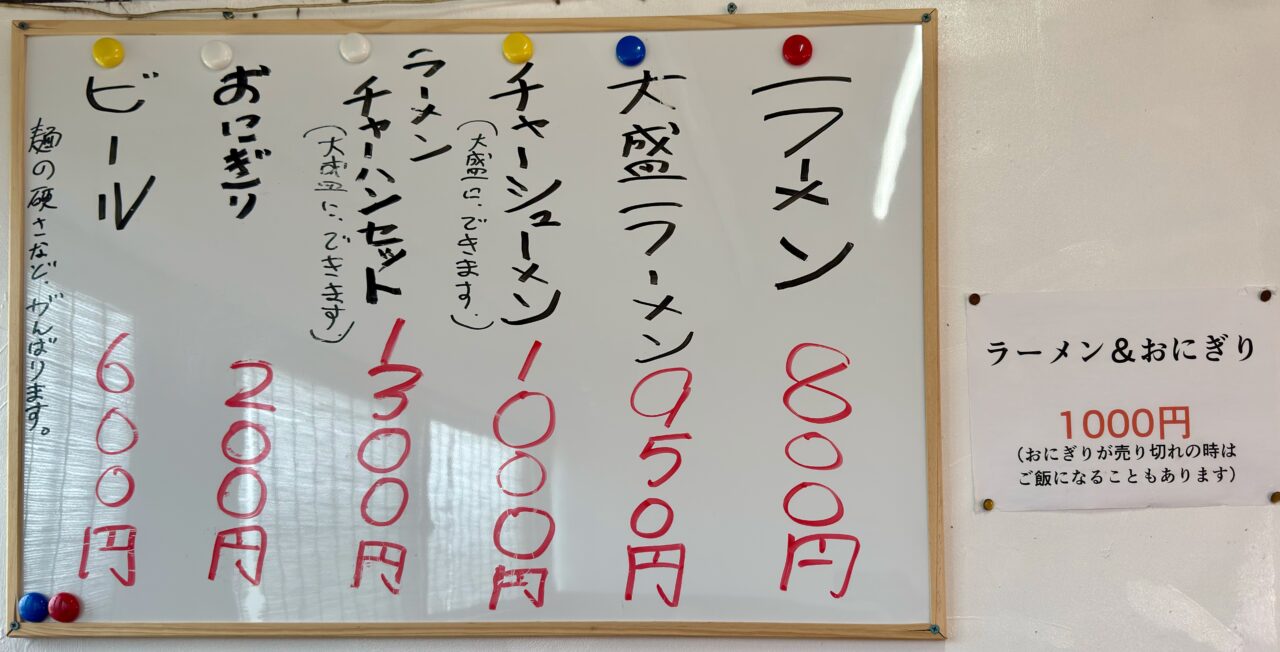 ラーメン 800円
大盛ラーメン 950円
チャーシューメン 1000円
(大盛に、できます。)
ラーメン
チャーハンセット 1300円
(大盛に、できます。)
おにぎり 200円
ビール 600円
麺の硬さなど、がんばります。
ラーメン&おにぎり
1000円
(おにぎりが売り切れの時は
ご飯になることもあります)